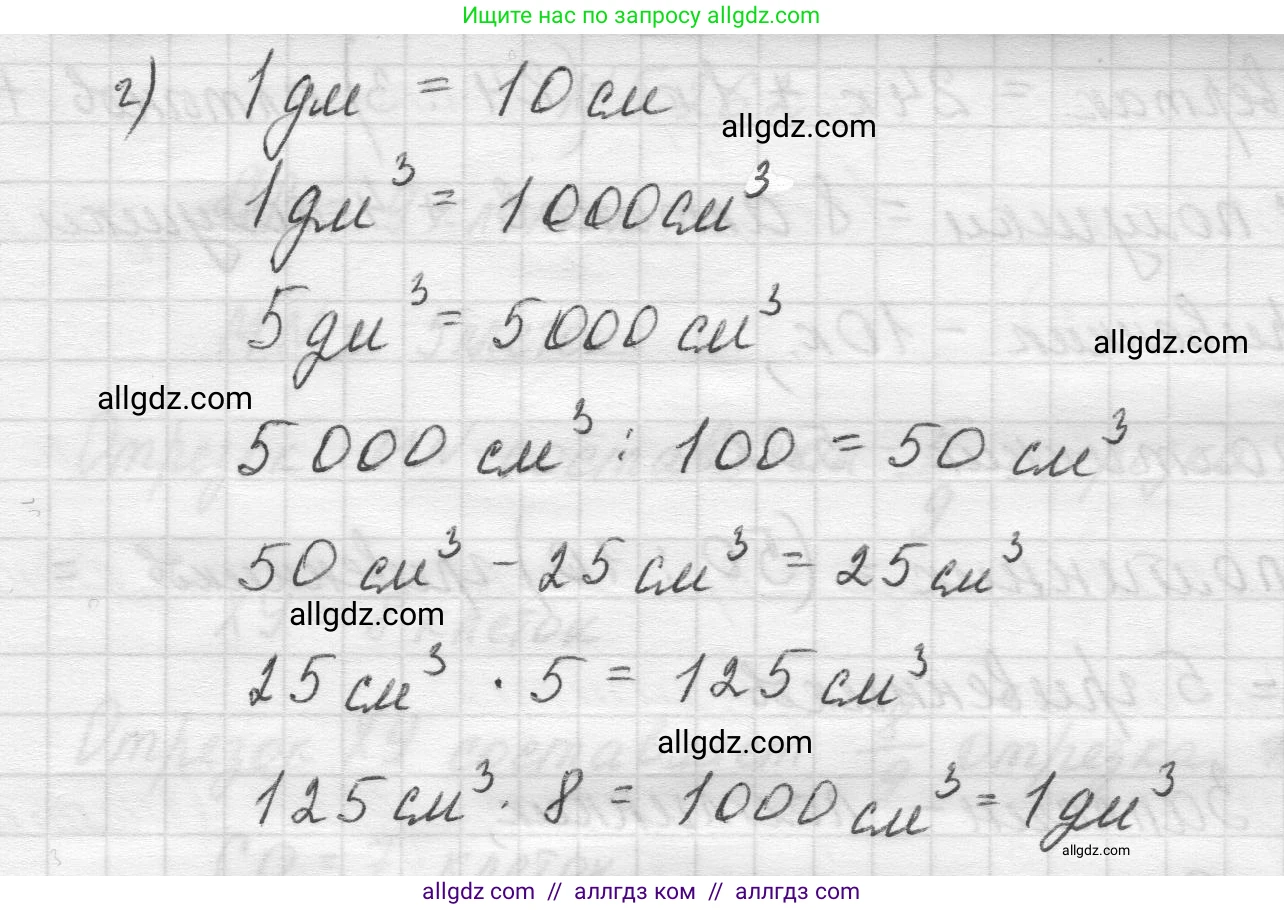 Ищите нас по запросу allgdz.com
г) 1 дм = 10 см
allgdz.com
1 дм³ = 1000 см³
5 дм³ = 5000 см³
allgdz.com
allgdz.com
5000 см³ : 100 = 50 см³
50 см³ - 25 см³ = 25 см³
allgdz.com
25 см³ · 5 = 125 см³
allgdz.com
125 см³ · 8 = 1000 см³ = 1 дм³
allgdz.com
allgdz com // аллгдз ком // аллгдз com